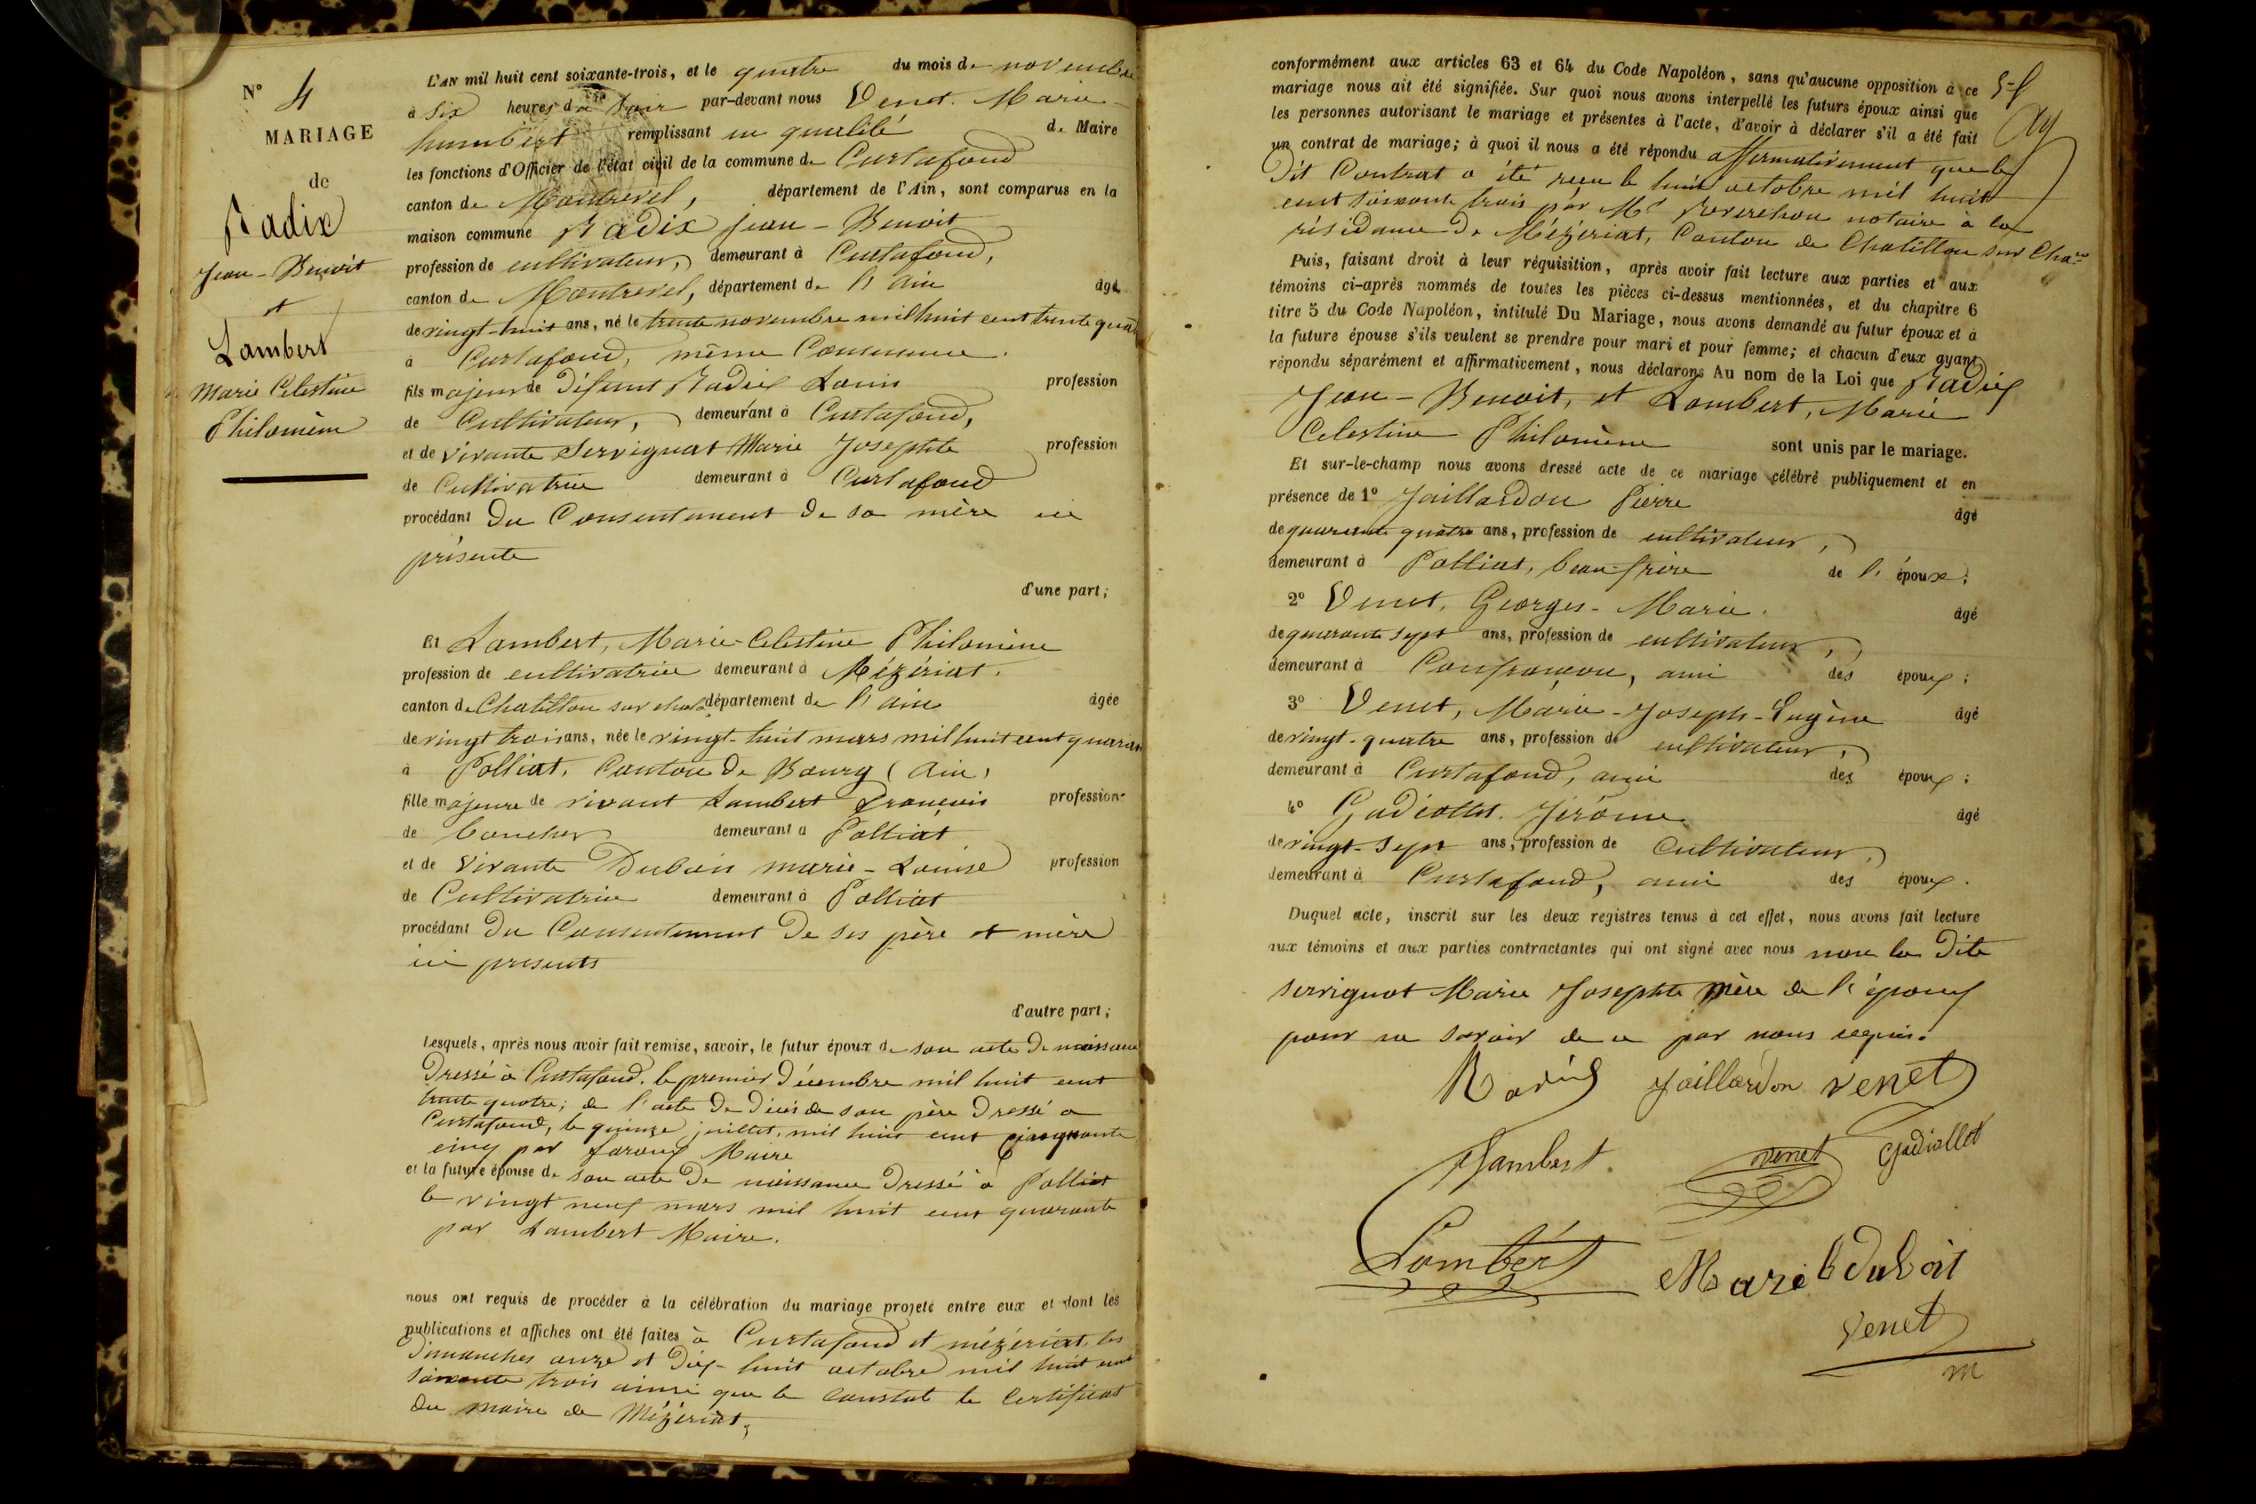 N° 4
MARIAGE
de
Radix
Jean-Benoit
et
Lambert
Marie Celestine
Philomène
L'AN mil huit cent soixante-trois, et le quatre du mois de novembre
à six heures du soir par-devant nous Venet Marie-
humbert remplissant en qualité de Maire
les fonctions d'Officier de l'état civil de la commune de Curtafond
canton de Montrevel, département de l'Ain, sont comparus en la
maison commune Radix Jean-Benoit
profession de cultivateur, demeurant à Curtafond,
canton de Montrevel, département de l'ain âgé
de vingt-huit ans, né le trente novembre mil huit cent trente quatre
à Curtafond, même Commune.
fils majeur de défunt Radix Louis profession
de Cultivateur, demeurant à Curtafond,
et de vivante Servignat Marie Josephte profession
de Cultivatrice demeurant à Curtafond
procédant du Consentement de sa mère ici
présente
d'une part;
Et Lambert, Marie-Celestine Philomène
profession de cultivatrice demeurant à Mézériat.
canton de Chatillon sur chal. département de l'ain âgée
de vingt trois ans, née le vingt-huit mars mil huit cent quaran
à Polliat, Canton de Bourg (Ain)
fille majeure de vivant Lambert François profession
de boucher demeurant à Polliat
et de vivante Dubois marie-Louise profession
de Cultivatrice demeurant à Polliat
procédant du Consentement de ses père et mère
ici presents
d'autre part;
Lesquels, après nous avoir fait remise, savoir, le futur époux de son acte de naissance
dressé à Curtafond, le premier décembre mil huit cent
trente quatre; de l'acte de décès de son père dressé a
Curtafond, le quinze juillet, mil huit cent cinquante
cinq par Maire
et la future épouse de son acte de naissance dressé à Polliat
le vingt neuf mars mil huit cent quarante
par Lambert Maire.
nous ont requis de procéder à la célébration du mariage projeté entre eux et dont les
publications et affiches ont été faites à Curtafond et mézériat, les
dimanches onze et dix-huit octobre mil huit cent
soixante trois ainsi que le constate le certificat
du maire de Mézériat;
conformément aux articles 63 et 64 du Code Napoléon, sans qu'aucune opposition à ce
mariage nous ait été signifiée. Sur quoi nous avons interpellé les futurs époux ainsi que
les personnes autorisant le mariage et présentes à l'acte, d'avoir à déclarer s'il a été fait
un contrat de mariage; à quoi il nous a été répondu affirmativement que le
dit Contrat a été reçu le huit octobre mil huit
cent soixante trois par Me notaire à la
résidance de Mézériat, Canton de Chatillon sur Cha.ne
Puis, faisant droit à leur réquisition, après avoir fait lecture aux parties et aux
témoins ci-après nommés de toutes les pièces ci-dessus mentionnées, et du chapitre 6
titre 5 du Code Napoléon, intitulé Du Mariage, nous avons demandé au futur époux et à
la future épouse s'ils veulent se prendre pour mari et pour femme; et chacun d'eux ayant
répondu séparément et affirmativement, nous déclarons Au nom de la Loi que Radix
Jean-Benoit, et Lambert, Marie
Celestine Philomène sont unis par le mariage.
Et sur-le-champ nous avons dressé acte de ce mariage célébré publiquement et en
présence de 1° Jaillardon Pierre âgé
de quarante quatre ans, profession de cultivateur,
demeurant à Polliat, beau-frère de l' époux;
2° Venet, Georges-Marie. âgé
de quarante sept ans, profession de cultivateur,
demeurant à Confrançon, ami des époux;
3° Venet, Marie-Joseph-Eugène âgé
de vingt-quatre ans, profession de cultivateur,
demeurant à Curtafond, ami des époux;
4° Gadiollet. Jérôme âgé
de vingt-sept ans, profession de Cultivateur,
demeurant à Curtafond, ami des époux.
Duquel acte, inscrit sur les deux registres tenus à cet effet, nous avons fait lecture
aux témoins et aux parties contractantes qui ont signé avec nous non la dite
servignat Marie Josephte mère de l'époux
pour ne savoir de ce par nous requis.
Radix Jaillardon venet
Lambert. venet Gadiollet
Lambert Marie duboit
Venet
m